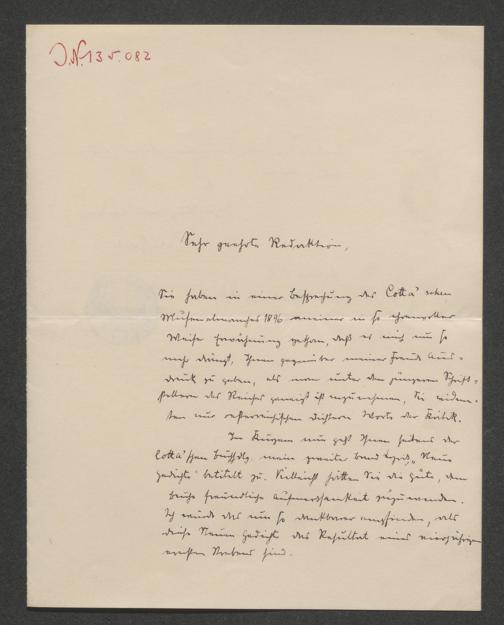 J.N. 135.082
Sehr geehrte Redaktion,
Sie haben in einer Besprechung des Cotta'schen
Musenalmanaches 1896 meiner in so ehrenvoller
Weise Erwähnung gethan, daß es mich um so
mehr drängt, Ihnen gegenüber meiner Freude Aus-
druck zu geben, als man unter den jüngeren Schrift-
stellern des Reiches geneigt ist anzunehmen, Sie widme-
ten nur oesterreichischen Dichtern Worte der Kritik.
Im kurzen nun geht Ihnen seitens der
Cotta'schen Buchhdlg. mein zweiter Band Lyrik, "Neue
Gedichte" betitelt zu. Vielleicht hätten Sie die Güte, dem
Buche freundliche Aufmerksamkeit zuzuwenden.
Ich würde das um so dankbarer empfinden, als
diese Neuen Gedichte das Resultat eines vierjährigen
ernsten Strebens sind.